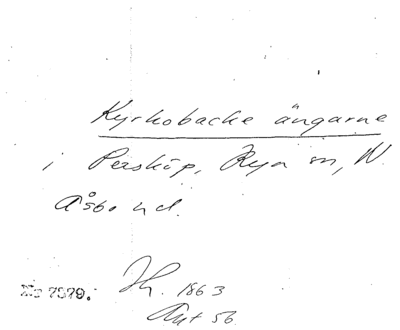 Kyrkobacke ängarne
i Perstorp, Rya sn, N.
Åsbo hd.
No 7579.
Jh. 1863
Akt 56